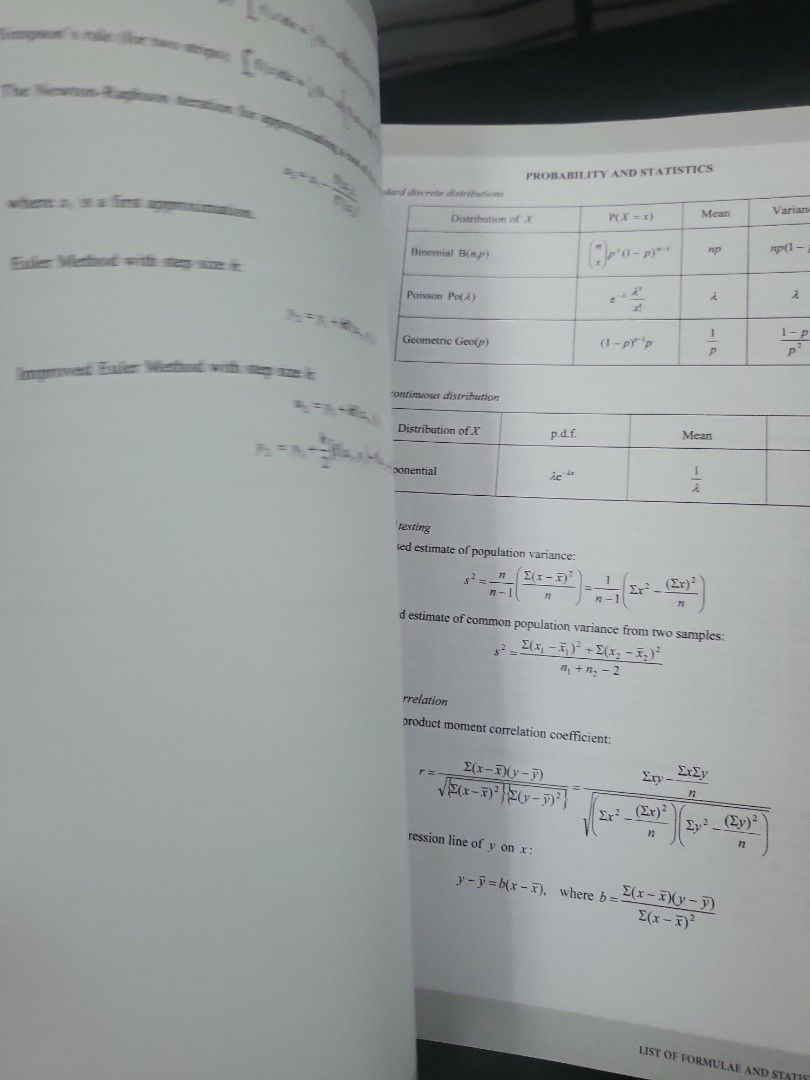 Simpson's rule (for two strips):
The Newton-Raphson iteration for approximating a
where x₁ is a first approximation.
Euler Method with step size
Improved Euler Method with step size
PROBABILITY AND STATISTICS
dard discrete distributions
Distribution of X P(X = x) Mean Varian
Binomial B(n,p) (n x) pˣ(1 − p)ⁿ⁻ˣ np np(1 −
Poisson Po(λ) e^−λ λˣ/x! λ λ
Geometric Geo(p) (1 − p)ˣ⁻¹p 1/p 1−p/p²
continuous distribution
Distribution of X p.d.f. Mean
ponential λe^−λx 1/λ
testing
sed estimate of population variance:
s² = n/(n−1) (Σ(x − x̄)²/n) = 1/(n−1) (Σx² − (Σx)²/n)
d estimate of common population variance from two samples:
s² = (Σ(x₁ − x̄₁)² + Σ(x₂ − x̄₂)²)/(n₁ + n₂ − 2)
rrelation
product moment correlation coefficient:
r = Σ(x − x̄)(y − ȳ)/√{Σ(x − x̄)²}{Σ(y − ȳ)²} = (Σxy − ΣxΣy/n)/√(Σx² − (Σx)²/n)(Σy² − (Σy)²/n)
ression line of y on x:
y − ȳ = b(x − x̄), where b = Σ(x − x̄)(y − ȳ)/Σ(x − x̄)²
LIST OF FORMULAE AND STATIS